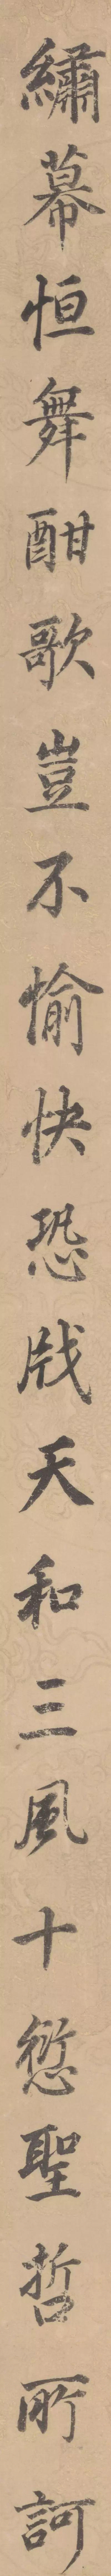 繡幕恒舞酣歌豈不愉快恐戕天和三風十愆聖哲所訶